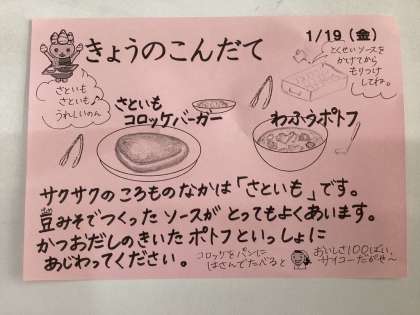 きょうのこんだて
1/19(金)
さといも
さといも♪
うれしいのん
とくせいソースを
かけてから
もりつけ
してね。
さといも
コロッケバーガー
わふうポトフ
サクサクの ころもの なかは「さといも」です。
豆みそでつくった ソースが とってもよくあいます。
かつおだしのきいた ポトフといっしょに
あじわってください。
コロッケをパンに
はさんでたべると
おいしさ100ばい、
サイコーだがせ〜